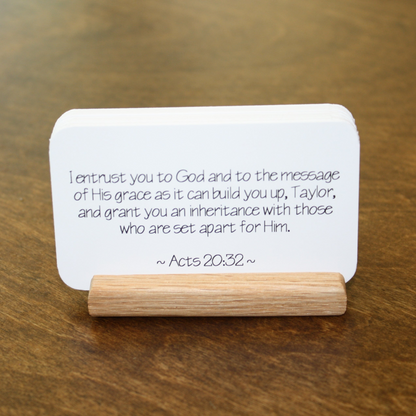 I entrust you to God and to the message
of His grace as it can build you up, Taylor,
and grant you an inheritance with those
who are set apart for Him.
~ Acts 20:32 ~